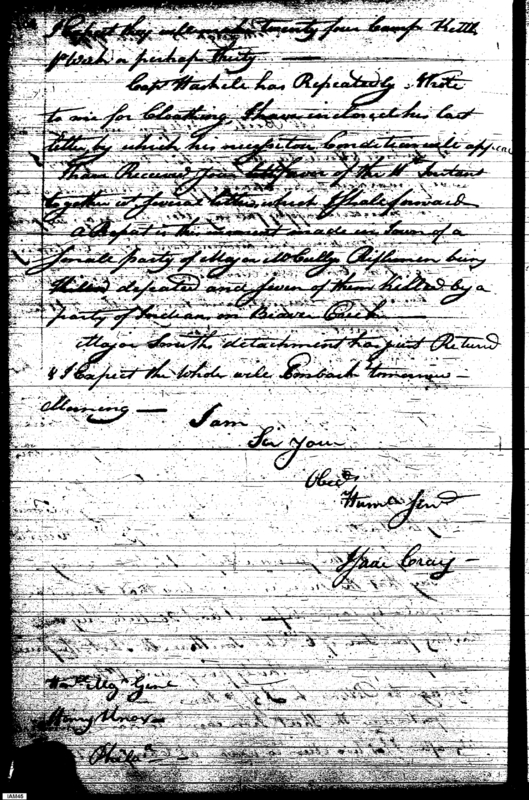 I Expect they will make Twenty four Camp Kettl
pr Week or perhaps thirty —
Capt Haskell has Repeatedly Wrote
to me for Cloathing, I have inclosed his last
letter by which his necessitous Condition will appear
I have Received your favor of the 11th Instant
together wt several letters which I shall forward
A Report is this moment made in Town of a
small party of Major McCullys Riflemen being
defeated and seven of them killed by a
party of Indians on Beaver Creek
Major Smiths detachment has just Returnd
& I Expect the Whole will Embark tomorrow
Morning — I am
Sir your
Obedt
Humle Servt
Isaac Craig
Honble Majr Genl
Henry Knox
Philaa
IAM45